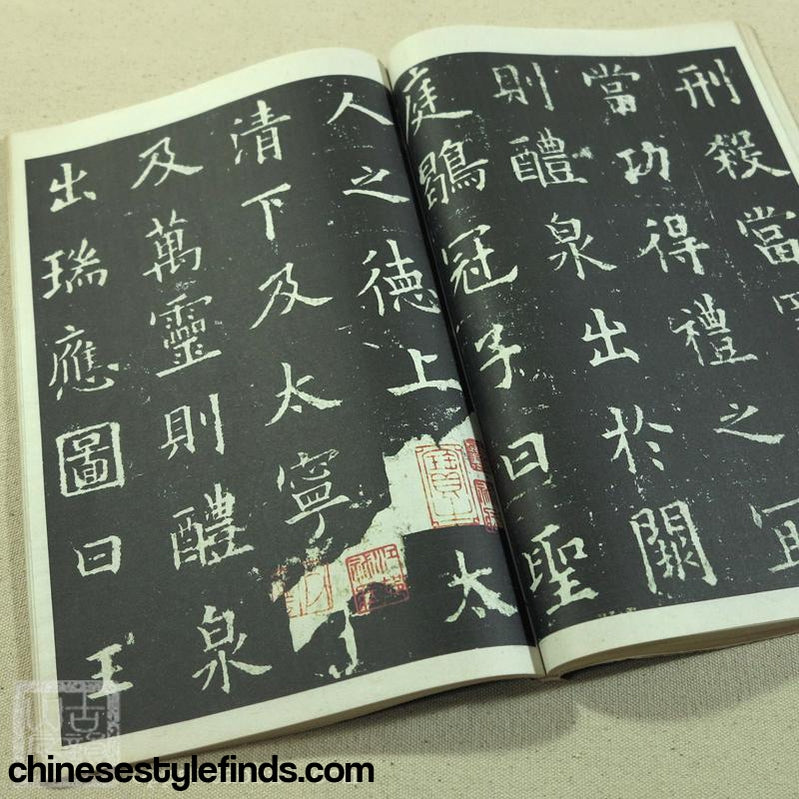 刑殺當
當功得禮之宜
則醴泉出於闕
庭鶡冠子曰聖
人之德上太
清下及太寧
及萬靈則醴泉
出瑞應圖曰王
chinesestylefinds.com